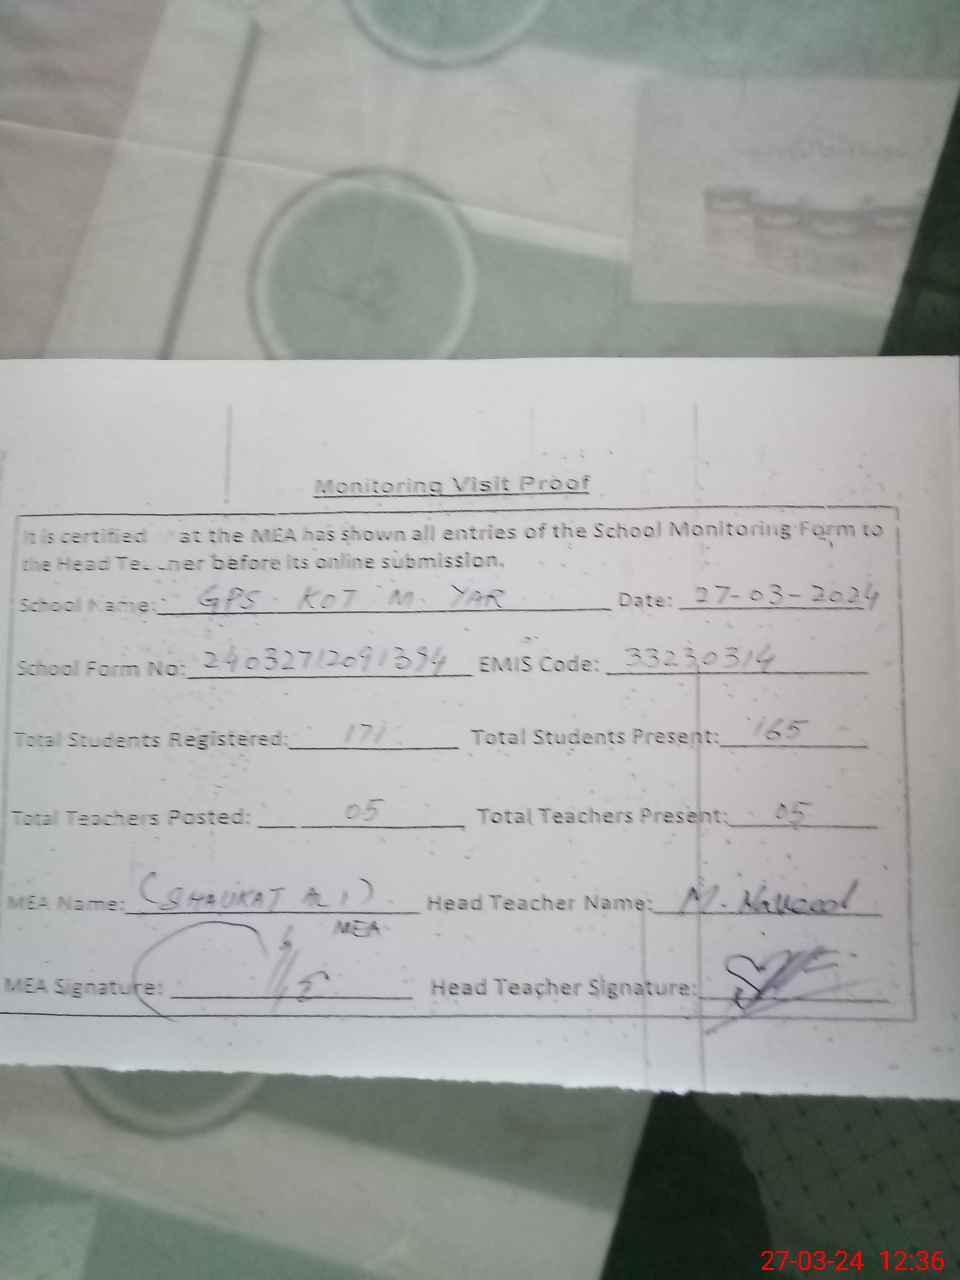 Monitoring Visit Proof
It is certified at the MEA has shown all entries of the School Monitoring Form to
the Head Te ner before its online submission.
School Name: GPS KOT M. YAR Date: 27-03-2024
School Form No: 24032712091394 EMIS Code: 33230314
Total Students Registered: 171 Total Students Present: 165
Total Teachers Posted: 05 Total Teachers Present: 05
MEA Name: (SHAUKAT ALI) Head Teacher Name: M. Naveed
MEA
MEA Signature: Head Teacher Signature:
27-03-24 12:36